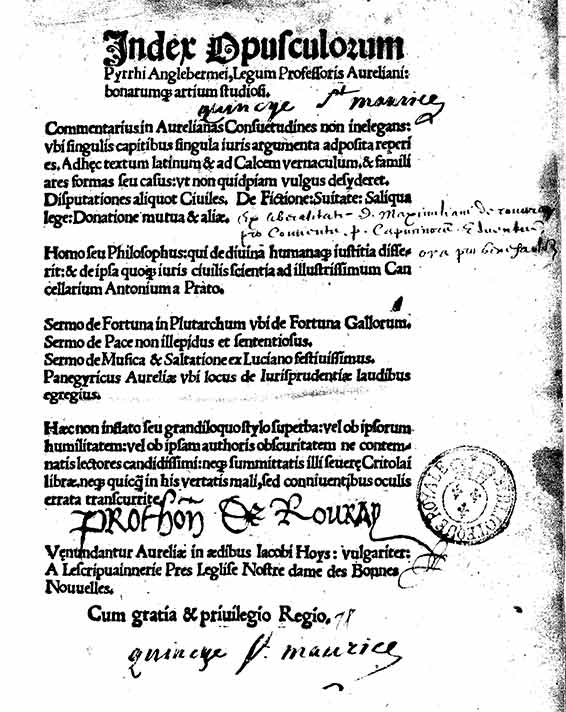 Index Opusculorum
Pyrrhi Anglebermei, Legum Professoris Aureliani:
bonarumq; artium studiosi.
quincye st maurice
Commentarius in Aurelianas Consuetudines non inelegans:
vbi singulis capitibus singula iuris argumenta adposita reperi
es. Adhęc textum latinum & ad Calcem vernaculum, & famili
ares formas seu casus: vt non quidpiam vulgus desyderet.
Disputationes aliquot Ciuiles. De Fictione: Suitate: Saliqua
lege: Donatione mutua & aliæ.
Ex liberalitate D. Maximiliani de rouuray
pro Conventu
Homo seu Philosophus: qui de diuina humanaq; iustitia disse
rit: & de ipsa quoq; iuris ciuilis scientia ad illustrissimum Can
cellarium Antonium a Prato.
Sermo de Fortuna in Plutarchum vbi de Fortuna Gallorum.
Sermo de Pace non illepidus et sententiosus.
Sermo de Musica & Saltatione ex Luciano festiuissimus.
Panegyricus Aureliæ vbi locus de Iurisprudentiæ laudibus
egregius.
Hæc non inflato seu grandiloquo stylo superba: vel ob ipsorum
humilitatem: vel ob ipsam authoris obscuritatem ne contem-
natis lectores candidissimi: neq; summittatis illi seuerę Critolai
libræ, neq; quicq̃ in his vertatis mali, sed conniuentibus oculis
errata transcurrite.
PROTHON De ROURAY
Venundantur Aureliæ in ædibus Iacobi Hoys: vulgariter:
A Lescripuainnerie Pres Leglise Nostre dame des Bonnes
Nouuelles.
Cum gratia & priuilegio Regio.
quincye st. maurice